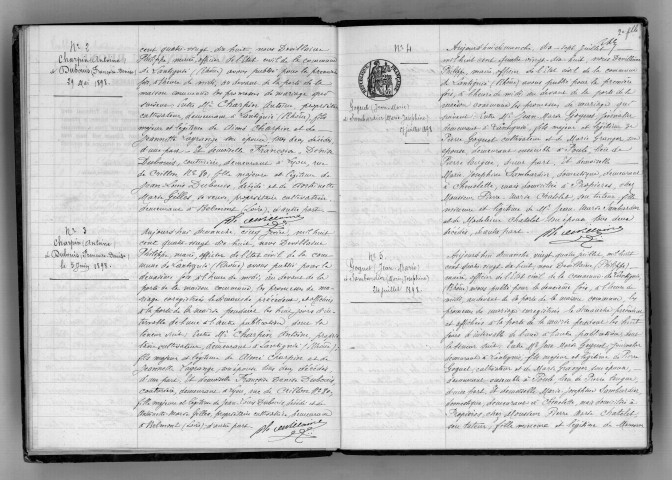 N° 2
Charpin (Antoine)
& Dubouis (Françoise Denise)
29 Mai 1898.
cent quatre vingt dix huit, nous
Philippe, maire officier de l'état civil de la commune
de Lantignié (Rhône) avons publié pour la première
fois, à l'heure de midi, au devant de la porte de la
maison commune les promesses de mariage qui
suivent : entre Mr Charpin Antoine, propriétaire
cultivateur, demeurant à Lantignié (Rhône), fils
majeur et légitime de Aimé Charpin et de
Jeannette Lagrange son épouse tous deux décédés
d'une part. Et demoiselle Françoise Denise
Dubouis, couturière, demeurant à Lyon, rue
de Crillon N° 80, fille majeure et légitime de
Jean Louis Dubouis, décédé et de
Marie Gilles, sa veuve, propriétaire cultivatrice
demeurant à Belmont (Loire), d'autre part.
N° 3
Charpin (Antoine)
& Dubouis (Françoise Denise)
le 5 Juin 1898.
Aujourd'hui dimanche, cinq Juin, mil huit
cent quatre vingt dix huit, nous
Philippe, maire, officier de l'état civil de la com-
mune de Lantignié (Rhône) avons publié pour la
deuxième fois à l'heure de midi, au devant de la
porte de la maison commune, les promesses de ma-
riage enregistrées le dimanche précédent et affichées
à la porte de la mairie pendant les huit jours d'in-
tervalle de l'une à l'autre publication dont la
teneur suit : entre Mr Charpin Antoine, proprié-
taire cultivateur, demeurant à Lantignié (Rhône)
fils majeur et légitime de Aimé Charpin et de
Jeannette Lagrange, son épouse tous deux décédés
d'une part. Et demoiselle Françoise Denise Dubouis
couturière, demeurant à Lyon, rue de Crillon N° 80,
fille majeure et légitime de Jean Louis Dubouis décédé et de
Marie Gilles, propriétaire cultivatrice, demeurant
à Belmont (Loire) d'autre part.
N° 4
Goguet (Jean Marie)
& Lombardin (Marie Joséphine)
17 juillet 1898
Aujourd'hui dimanche, dix sept juillet
mil huit cent quatre vingt dix huit, nous
Philippe, maire officier de l'état civil de la commune
de Lantignié (Rhône) avons publié pour la première
fois, à l'heure de midi au devant de la porte de la
maison commune les promesses de mariage qui
suivent. Entre Mr Jean Marie Goguet
demeurant à Lantignié, fils majeur et légitime de
Pierre Goguet cultivateur et de Marie
épouse, demeurant ensemble à Poule, lieu de
d'une part. Et demoiselle
Marie Joséphine Lombardin, domestique, demeurant
à Chenelette, mais domiciliée à Propières, chez
Monsieur Pierre Marie Chatelet son tuteur, fille
mineure et légitime de Jean Marie Lombardin
et de Madeleine Chatelet son épouse tous deux
décédés, d'autre part.
N° 5
Goguet (Jean Marie)
& Lombardin (Marie Joséphine)
24 juillet 1898.
Aujourd'hui dimanche vingt quatre juillet, mil huit
cent quatre vingt dix huit, nous (Philippe)
maire, officier de l'état civil de la commune de Lantignié,
(Rhône) avons publié pour la deuxième fois, à l'heure de
midi, au devant de la porte de la maison commune, les
promesses de mariage enregistrées, le dimanche précédent
et affichées à la porte de la mairie pendant les huit
jours d'intervalle de l'une à l'autre publication dont
la teneur suit : Entre Mr Jean Marie Goguet,
demeurant à Lantignié, fils majeur et légitime de Pierre
Goguet, cultivateur et de Marie son épouse,
demeurant ensemble à Poule
d'une part. Et demoiselle Marie Joséphine Lombardin,
domestique, demeurant à Chenelette, mais domiciliée à
Propières, chez Monsieur Pierre Marie Chatelet
son tuteur, fille mineure et légitime de Monsieur